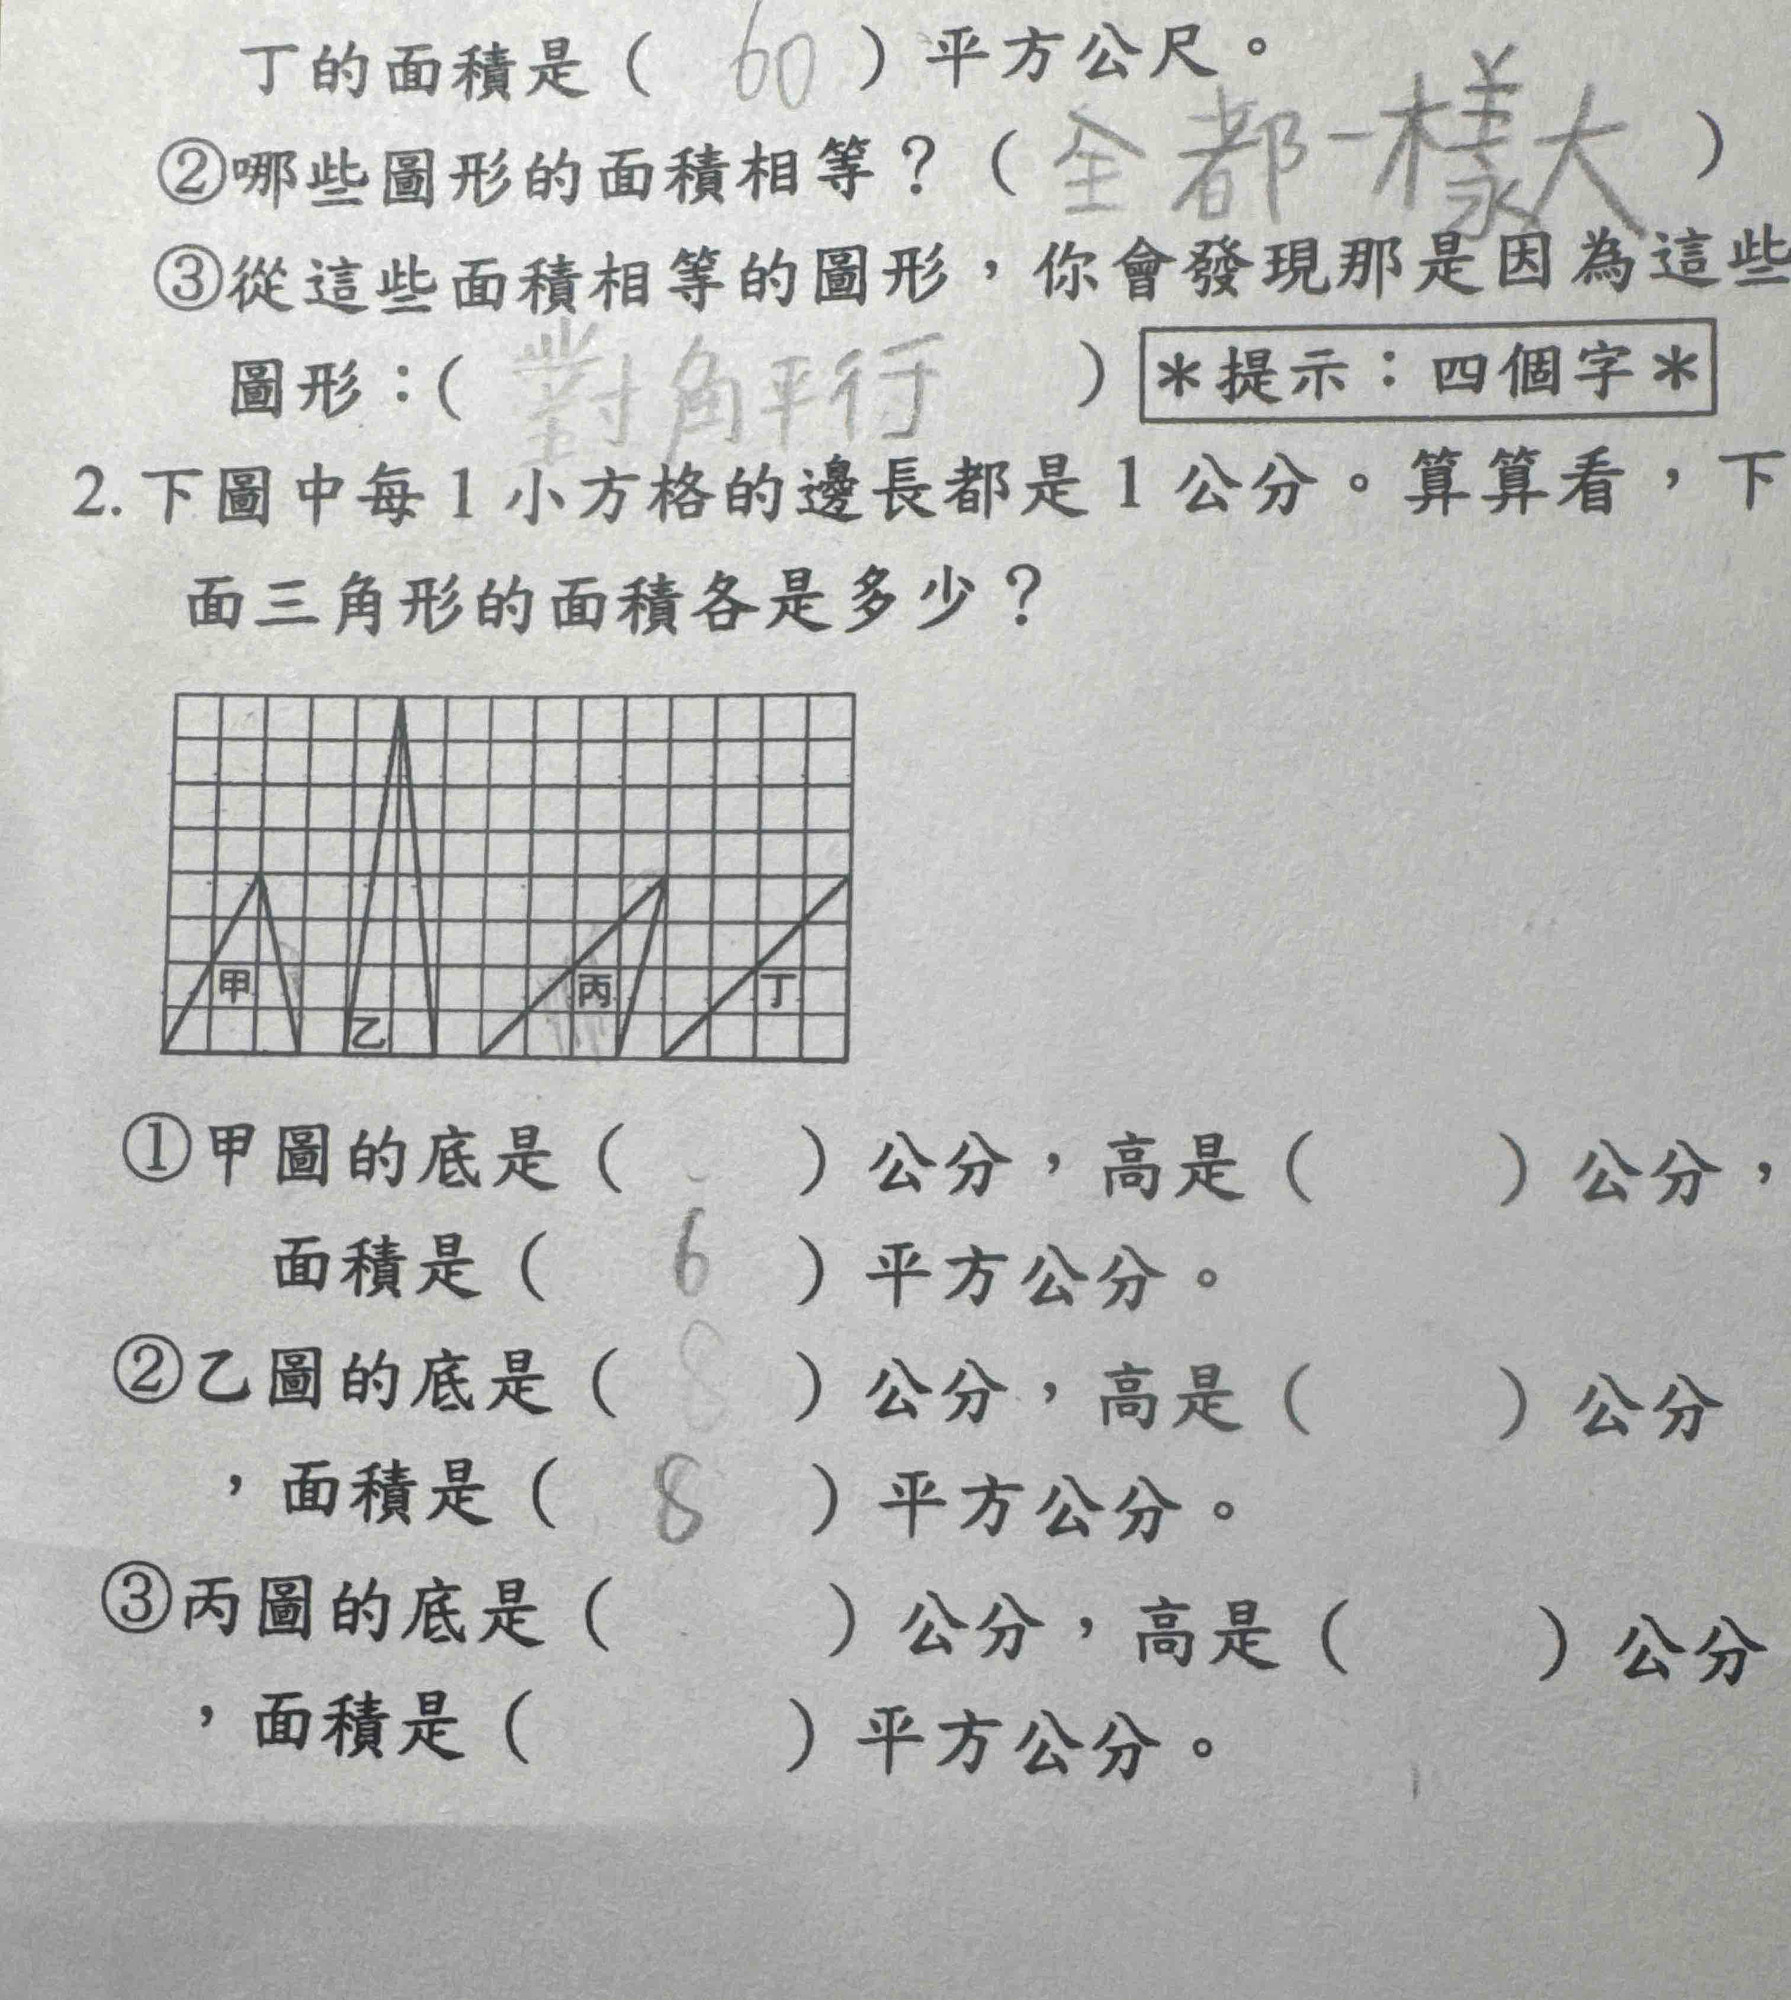 丁的面積是( 60 )平方公尺。
②哪些圖形的面積相等?(全都一樣大)
③從這些面積相等的圖形,你會發現那是因為這些
圖形:(對角平行)*提示:四個字*
2.下圖中每1小方格的邊長都是1公分。算算看,下
面三角形的面積各是多少?
甲 乙 丙 丁
①甲圖的底是( )公分,高是( )公分,
面積是( 6 )平方公分。
②乙圖的底是( 8 )公分,高是( )公分
,面積是( 8 )平方公分。
③丙圖的底是( )公分,高是( )公分
,面積是( )平方公分。